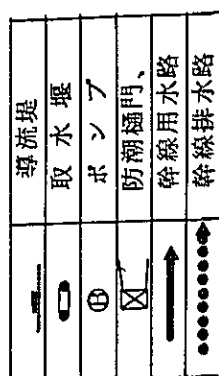 導流堤
取水堰
Ⓑ ポンプ
防潮樋門、
幹線用水路
幹線排水路